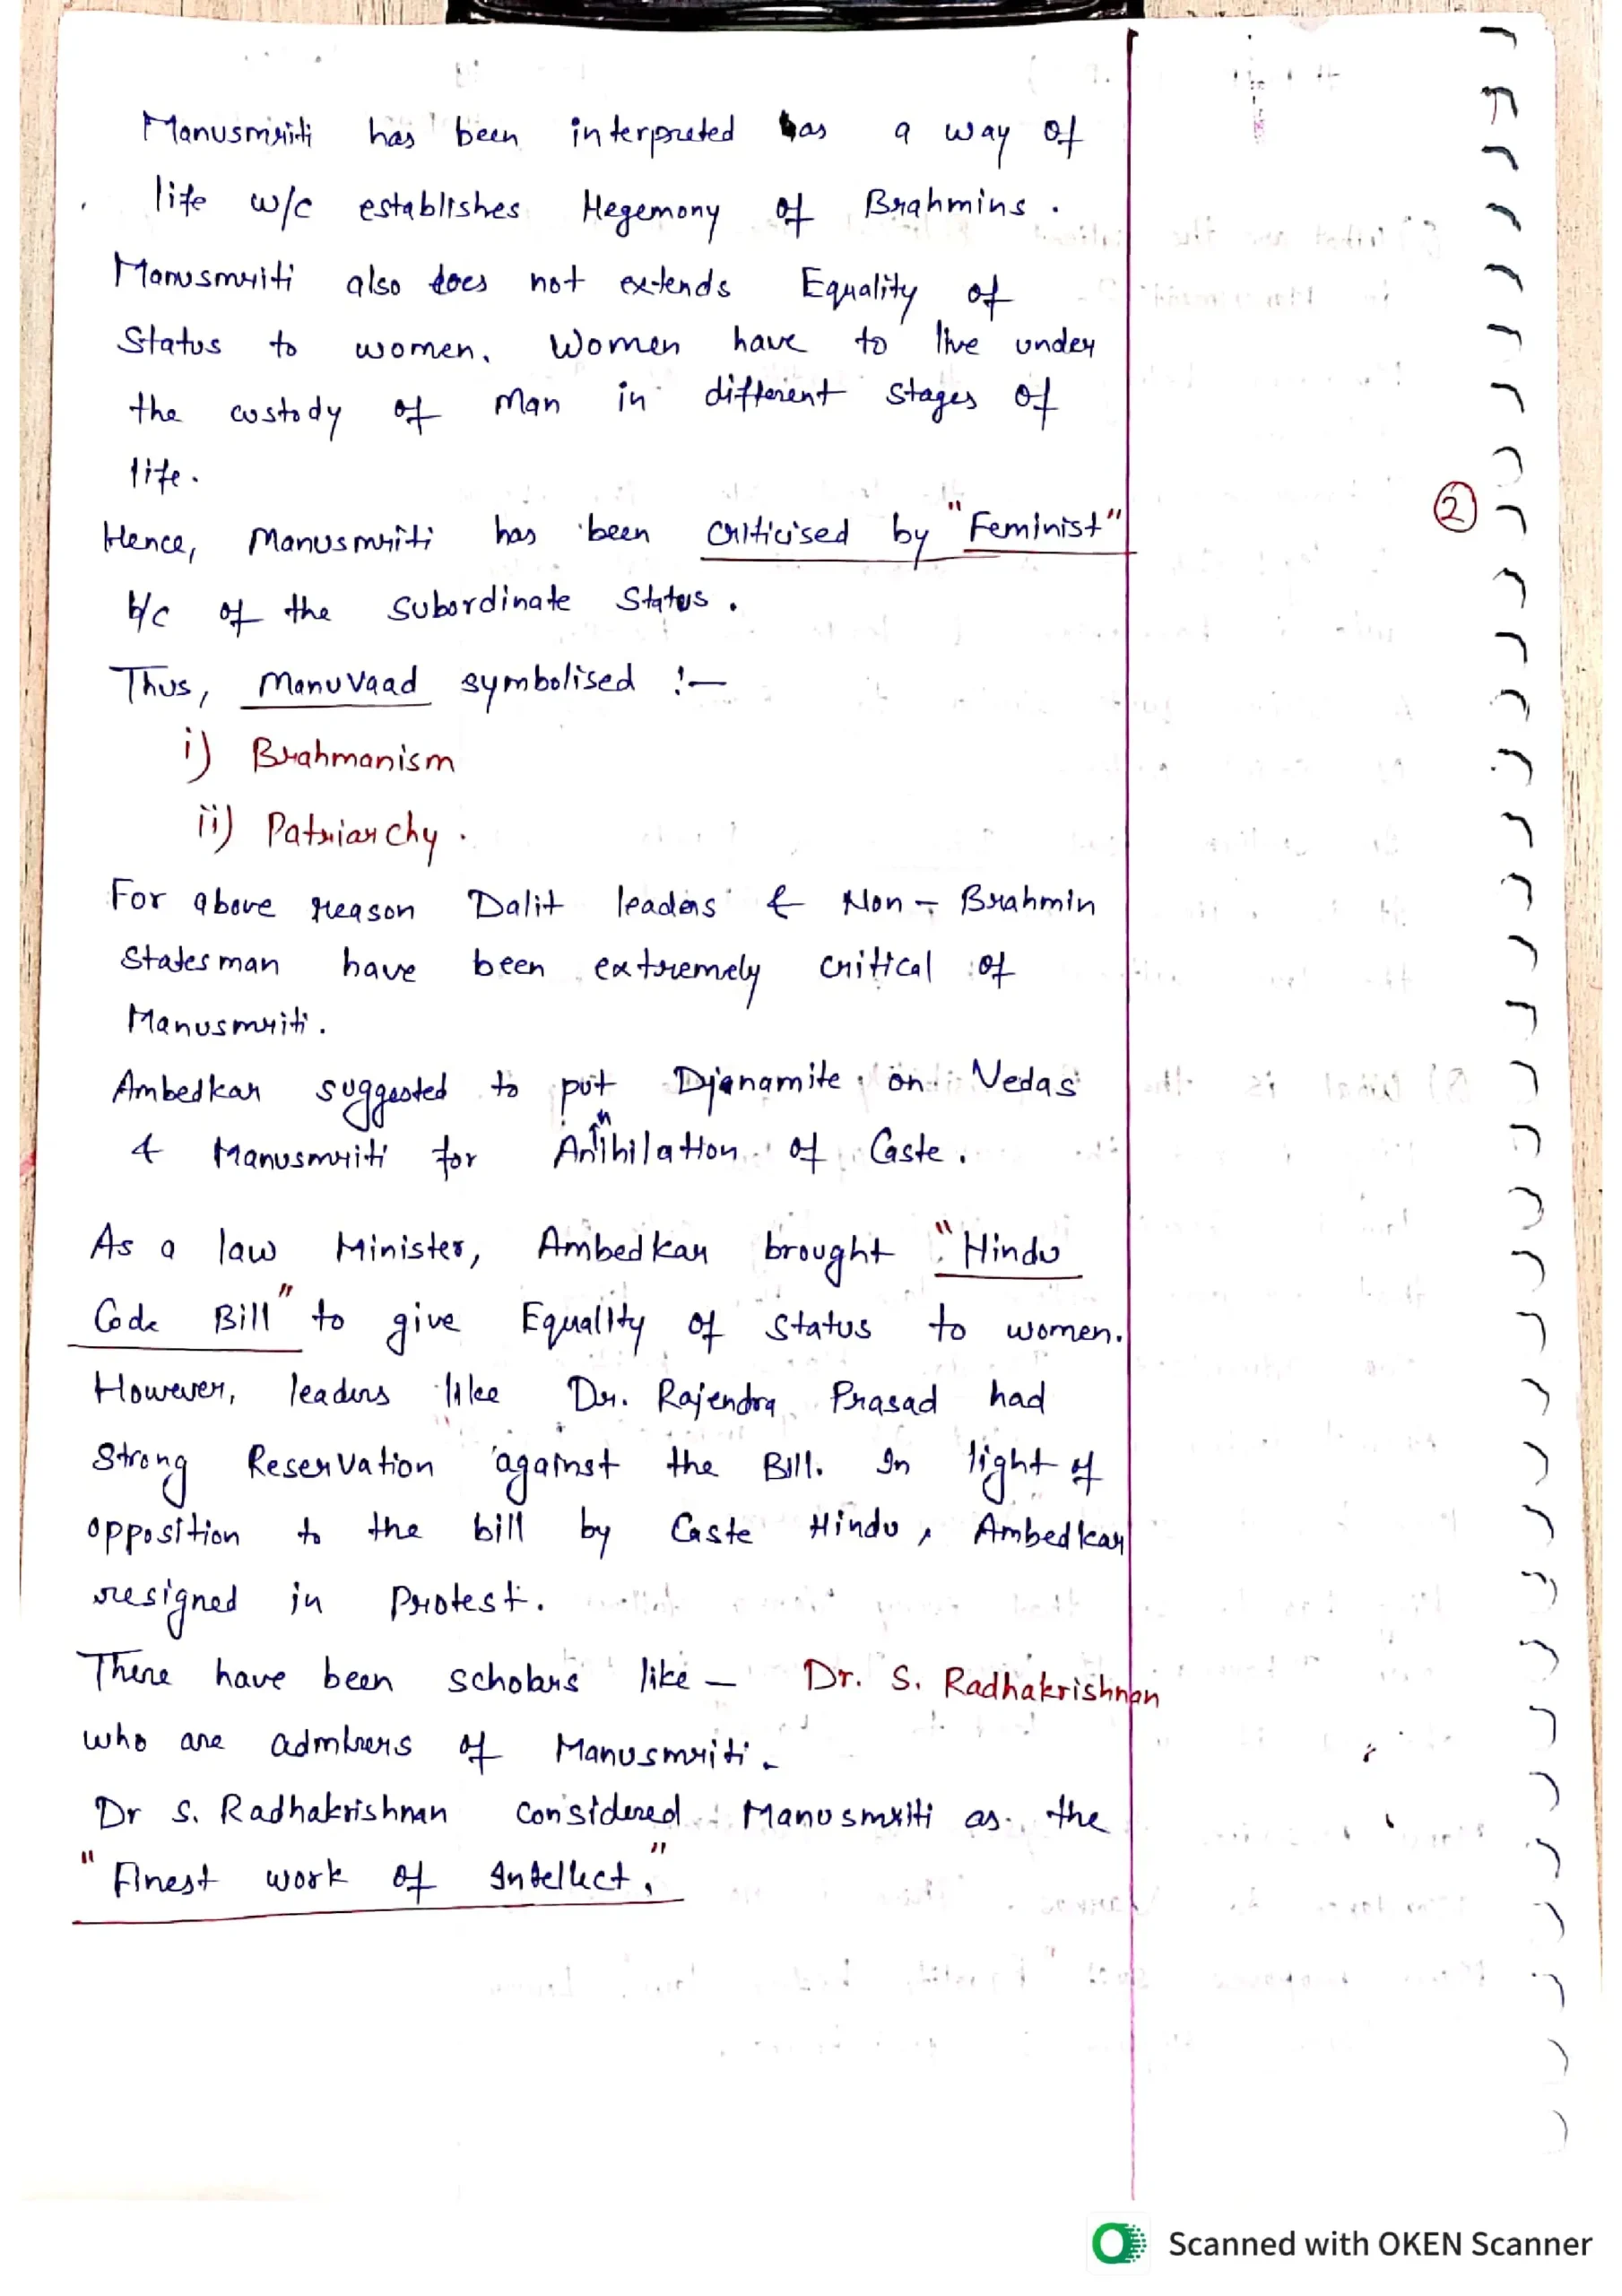 Manusmriti has been interpreted as a way of
life w/c establishes Hegemony of Brahmins.
Manusmriti also does not extends Equality of
Status to women. Women have to live under
the custody of Man in different stages of
life.
Hence, Manusmriti has been criticised by "Feminist"
b/c of the subordinate status.
2
Thus, Manuvaad symbolised :-
i) Brahmanism
ii) Patriarchy.
For above reason Dalit leaders & Non-Brahmin
Statesman have been extremely critical of
Manusmriti.
Ambedkar suggested to put Djanamite on Vedas
& Manusmriti for Annihilation of Caste.
As a law Minister, Ambedkar brought "Hindu
Code Bill" to give Equality of status to women.
However, leaders like Dr. Rajendra Prasad had
Strong Reservation against the Bill. In light of
opposition to the bill by Caste Hindu, Ambedkar
resigned in Protest.
There have been scholars like – Dr. S. Radhakrishnan
who are admirers of Manusmriti.
Dr S. Radhakrishnan considered Manusmriti as the
"Finest work of Intellect."
Scanned with OKEN Scanner